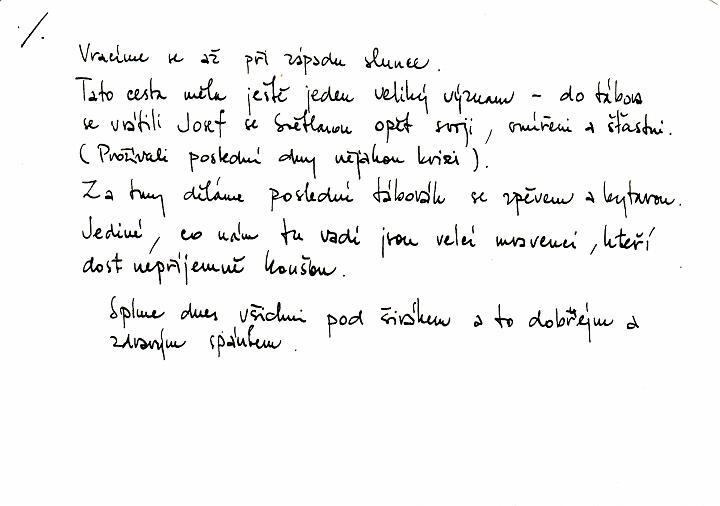 ·/.
Vracíme se až při západu slunce.
Tato cesta měla ještě jeden veliký význam – do tábora
se vrátili Josef se Světlanou opět svoji, smířeni a šťastni.
(Prožívali poslední dny nějakou krizi).
Za tmy děláme poslední táborák se zpěvem a kytarou.
Jediné, co nám tu vadí jsou velcí mravenci, kteří
dost nepříjemně koušou.
Spíme dnes všichni pod širákem a to dobrým a
zdravým spánkem.